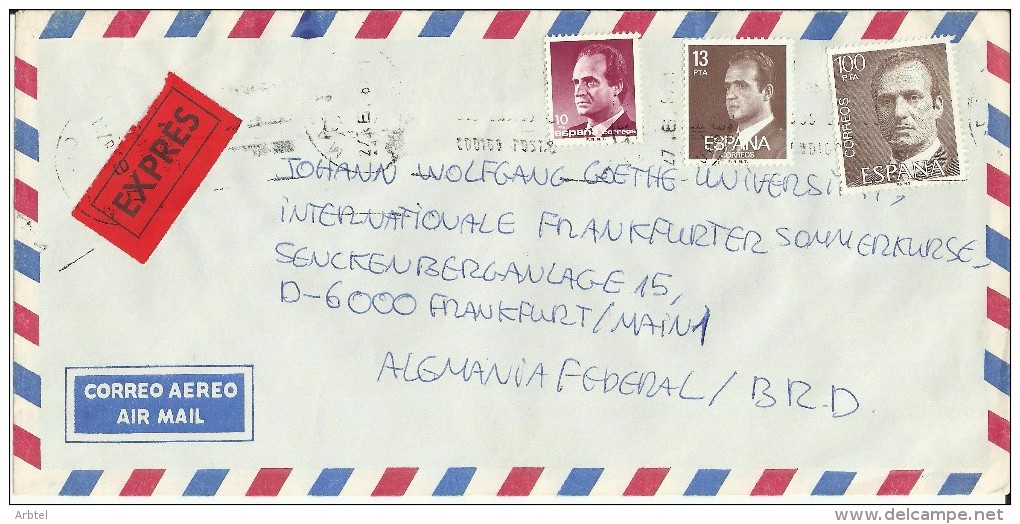 EXPRÈS
10
españa correos
13
PTA
ESPAÑA
CORREOS
100
PTA
CORREOS
ESPAÑA
JOHANN WOLFGANG GOETHE-UNIVERSITÄT,
INTERNATIONALE FRANKFURTER SOMMERKURSE,
SENCKENBERGANLAGE 15,
D-6000 FRANKFURT/MAIN 1
ALEMANIA FEDERAL / B.R.D.
CORREO AEREO
AIR MAIL
Arbtel
delcampe.net